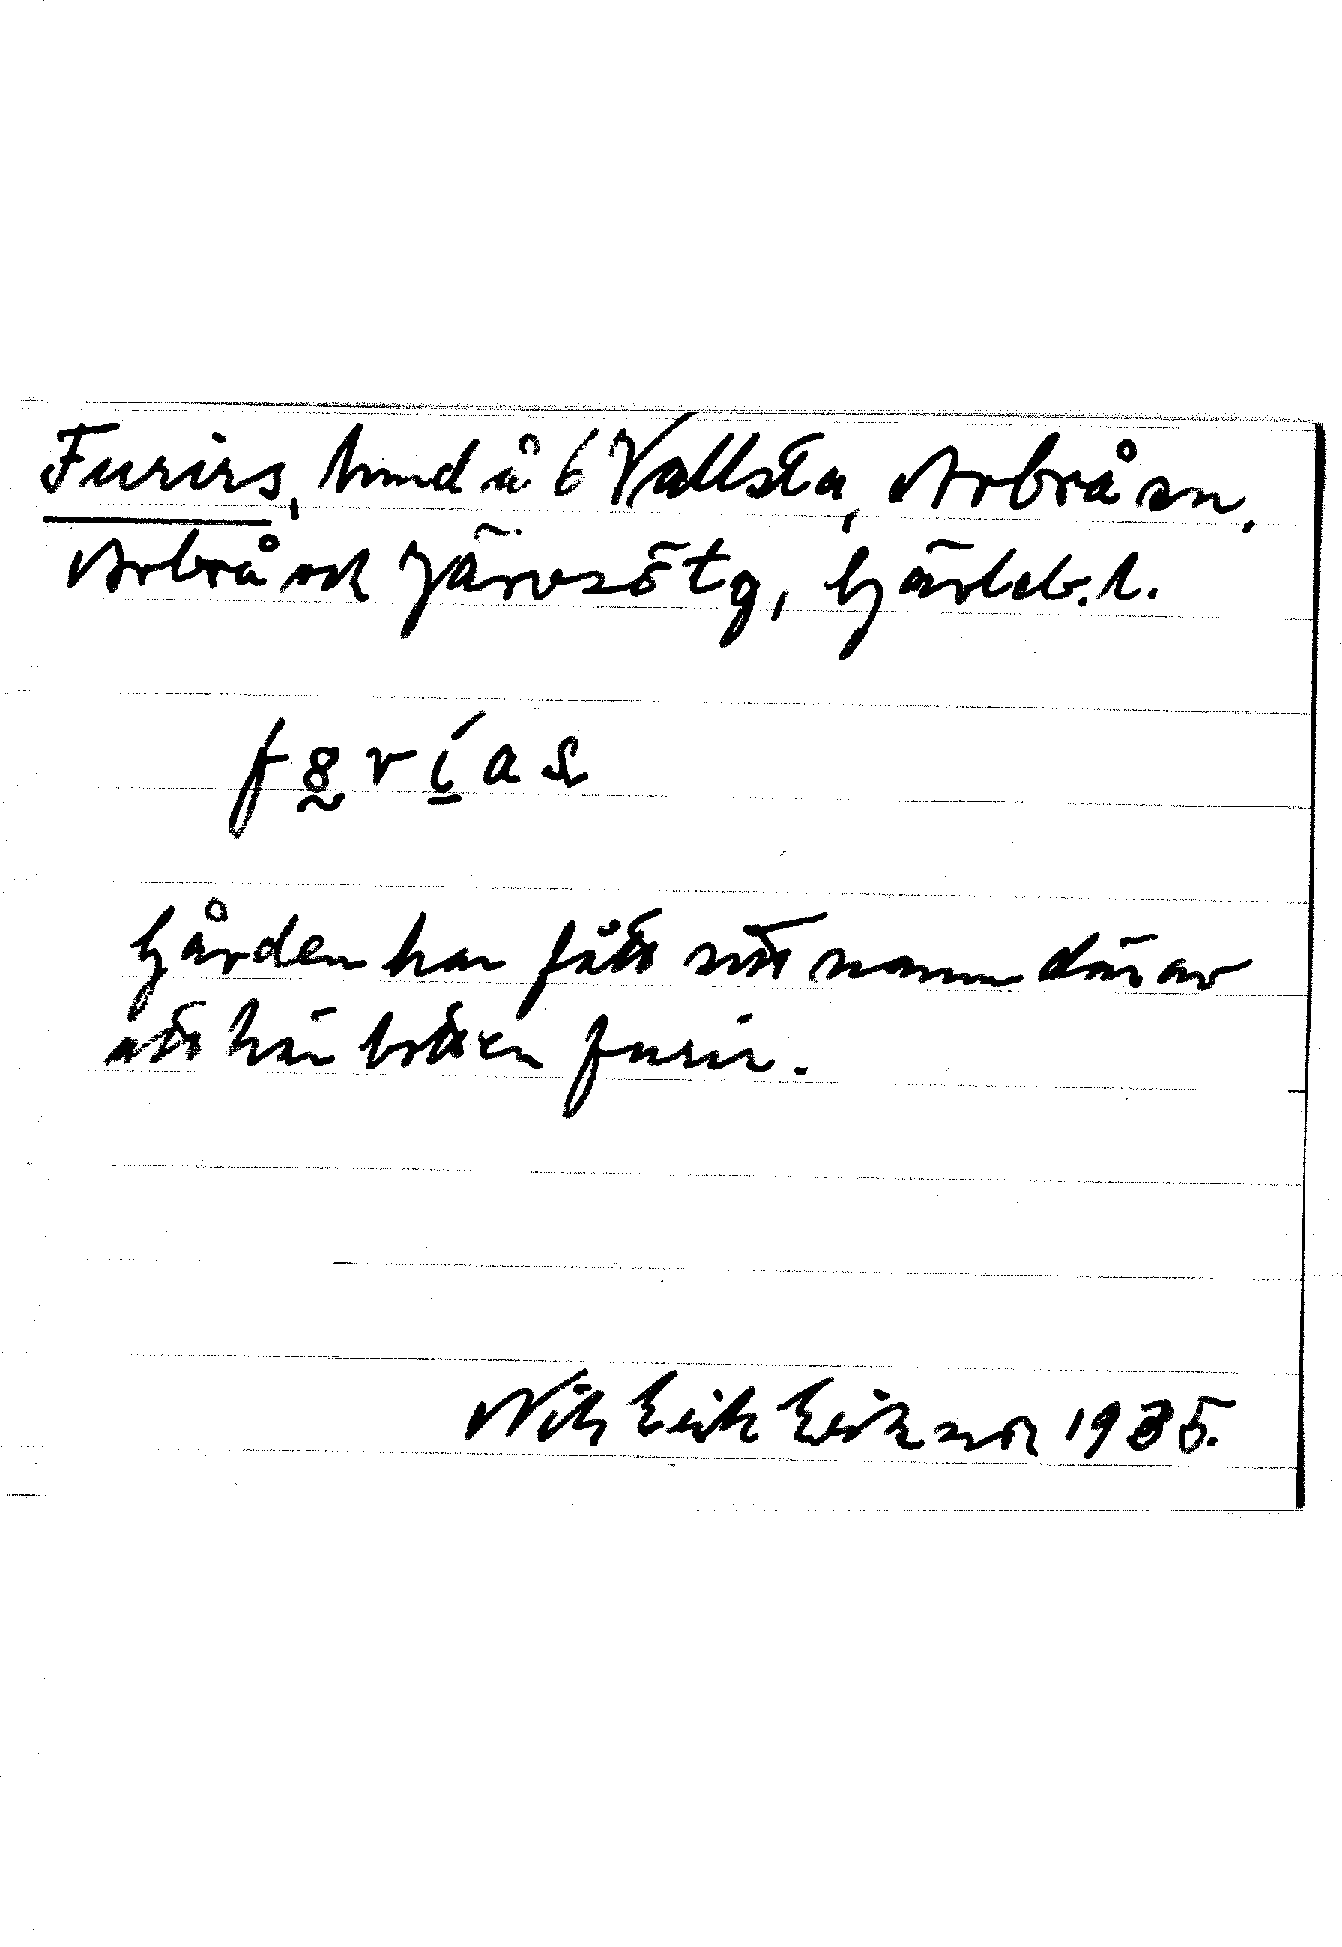 Furirs, hmd å 6 Vallsta, Arbrå sn,
Arbrå och Järvsö tg, Gävleb. l.
Gården har fått sitt namn därav
att här bott en furir.
Nils Erik Eriksson 1935.